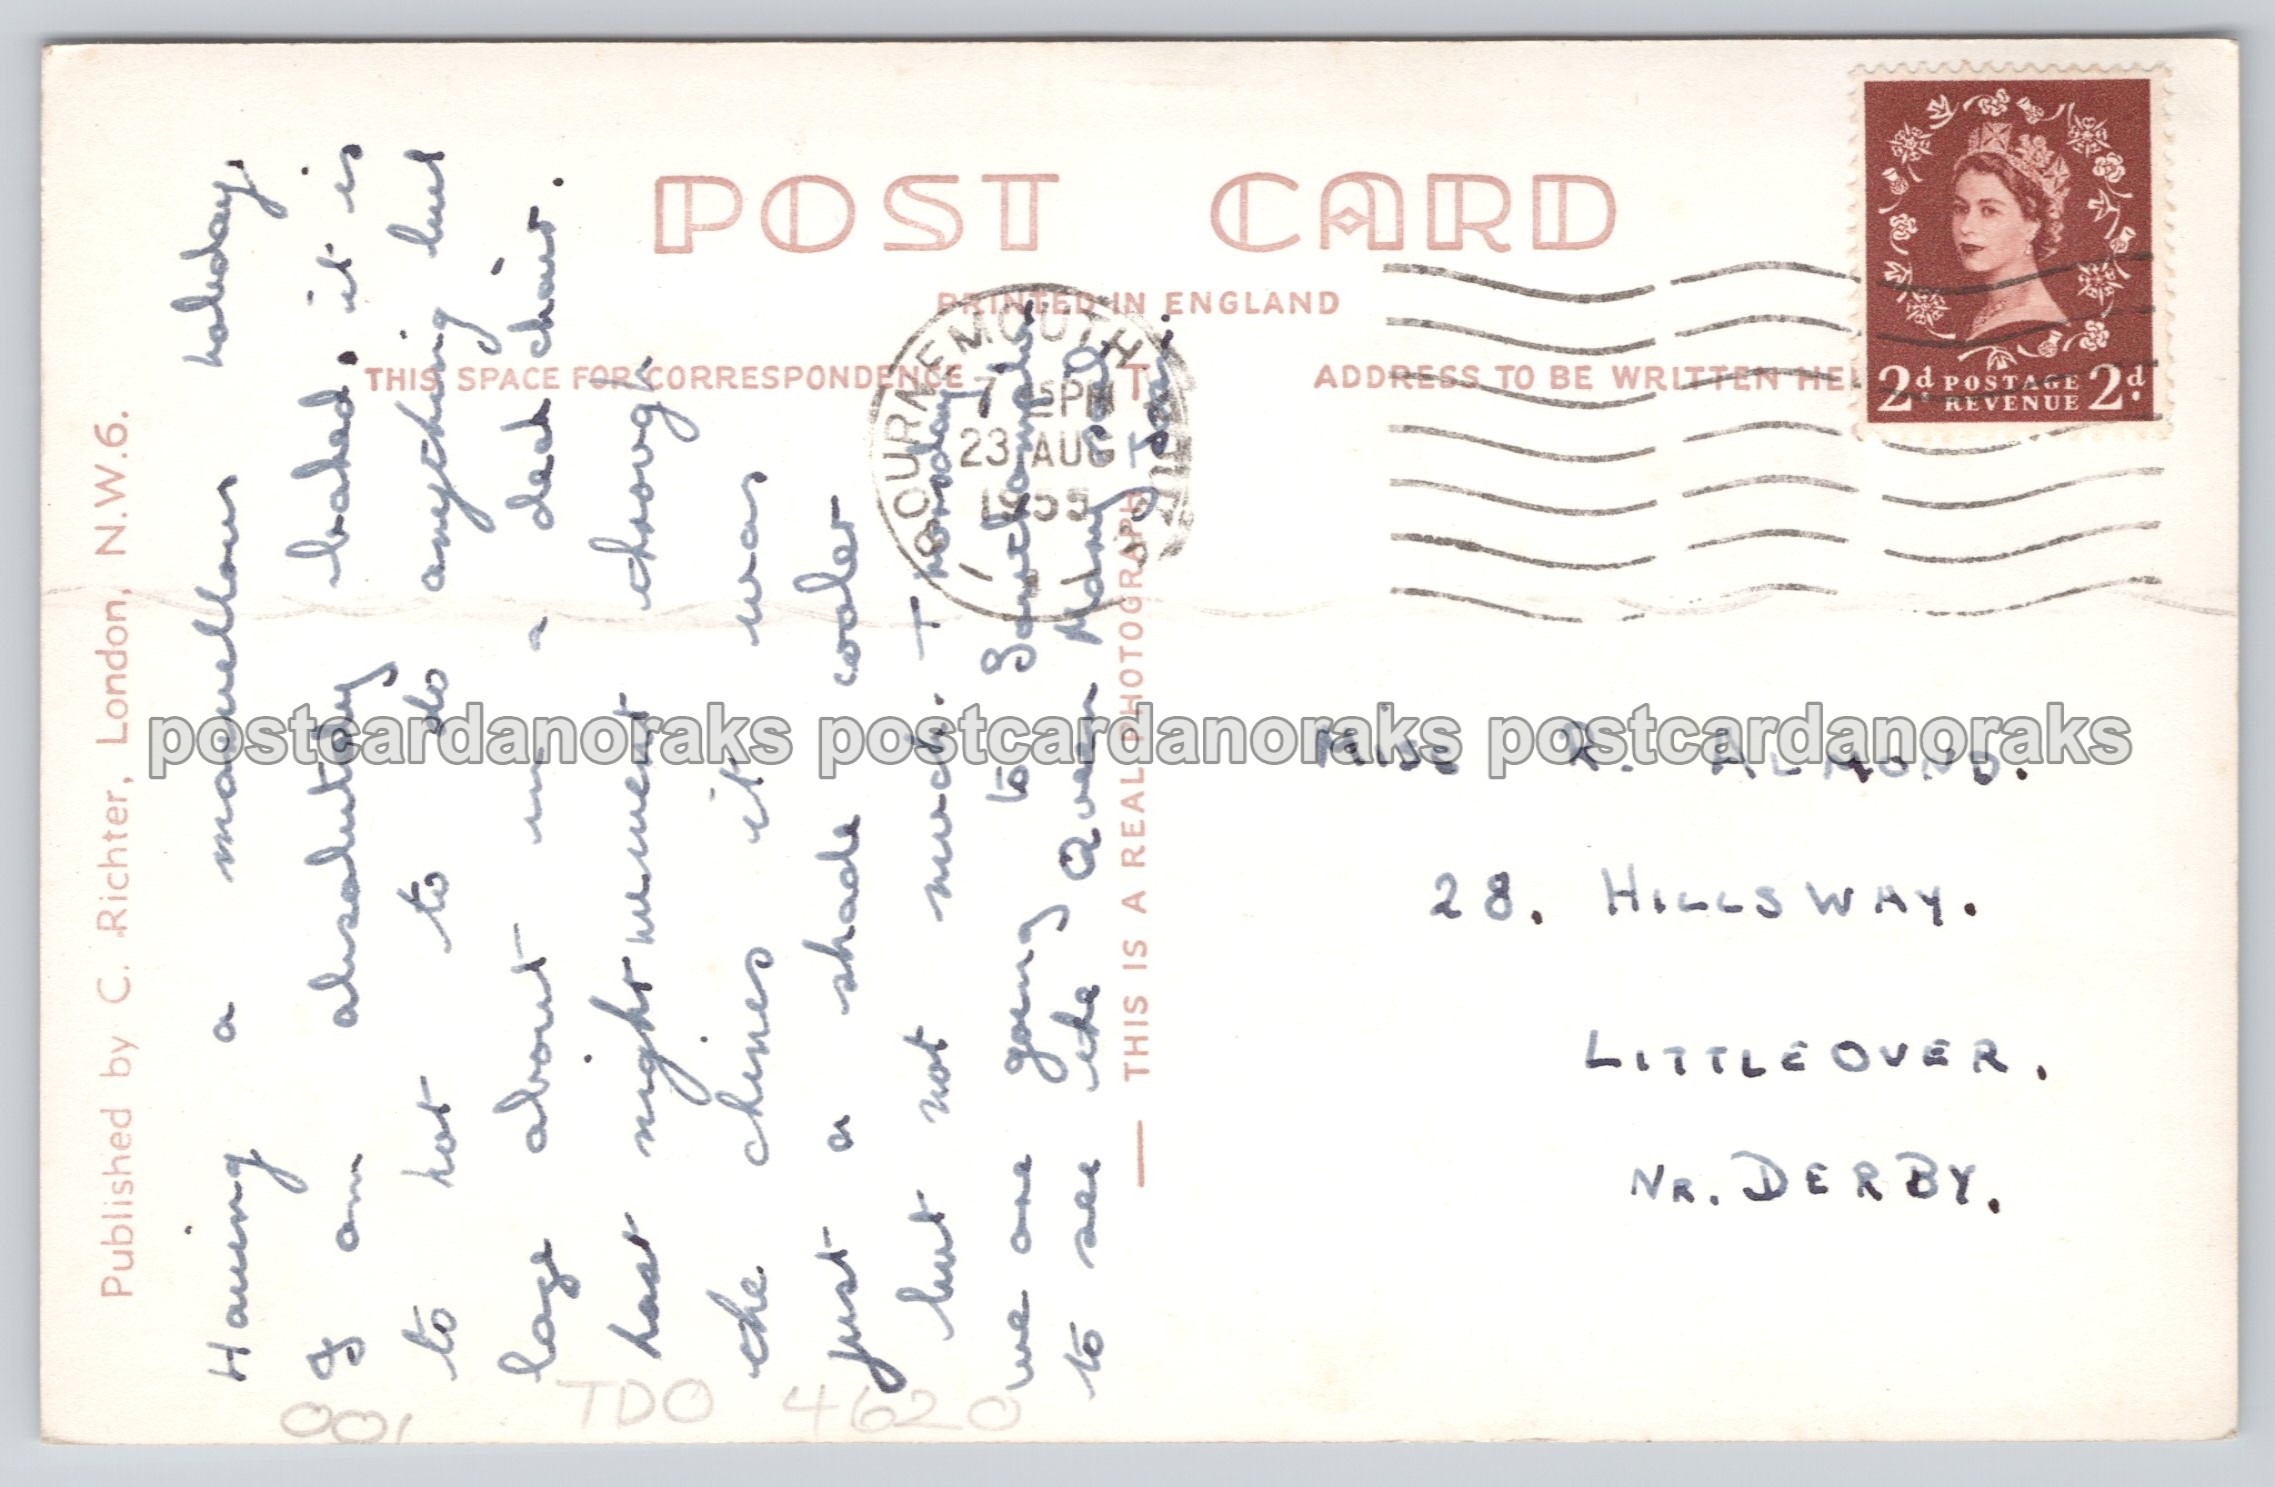 POST CARD
PRINTED IN ENGLAND
THIS SPACE FOR CORRESPONDENCE
ADDRESS TO BE WRITTEN HE
Published by C. Richter, London, N.W.6.
THIS IS A REAL PHOTOGRAPH
BOURNEMOUTH
7 15PM
23 AUG
1955
2d POSTAGE 2d
REVENUE
Having a marvellous holiday,
I am absolutely baked, it is
to hot to do anything but
laze about in a deck chair.
Last night went through
the chines it was
just a shade cooler
but not much. Thursday
we are going to Southampton
to see the Queen Mary sail
away.
MISS R. ALMOND.
28. HILLSWAY.
LITTLEOVER.
NR. DERBY.
001 TDO 4620
postcardanoraks postcardanoraks postcardanoraks